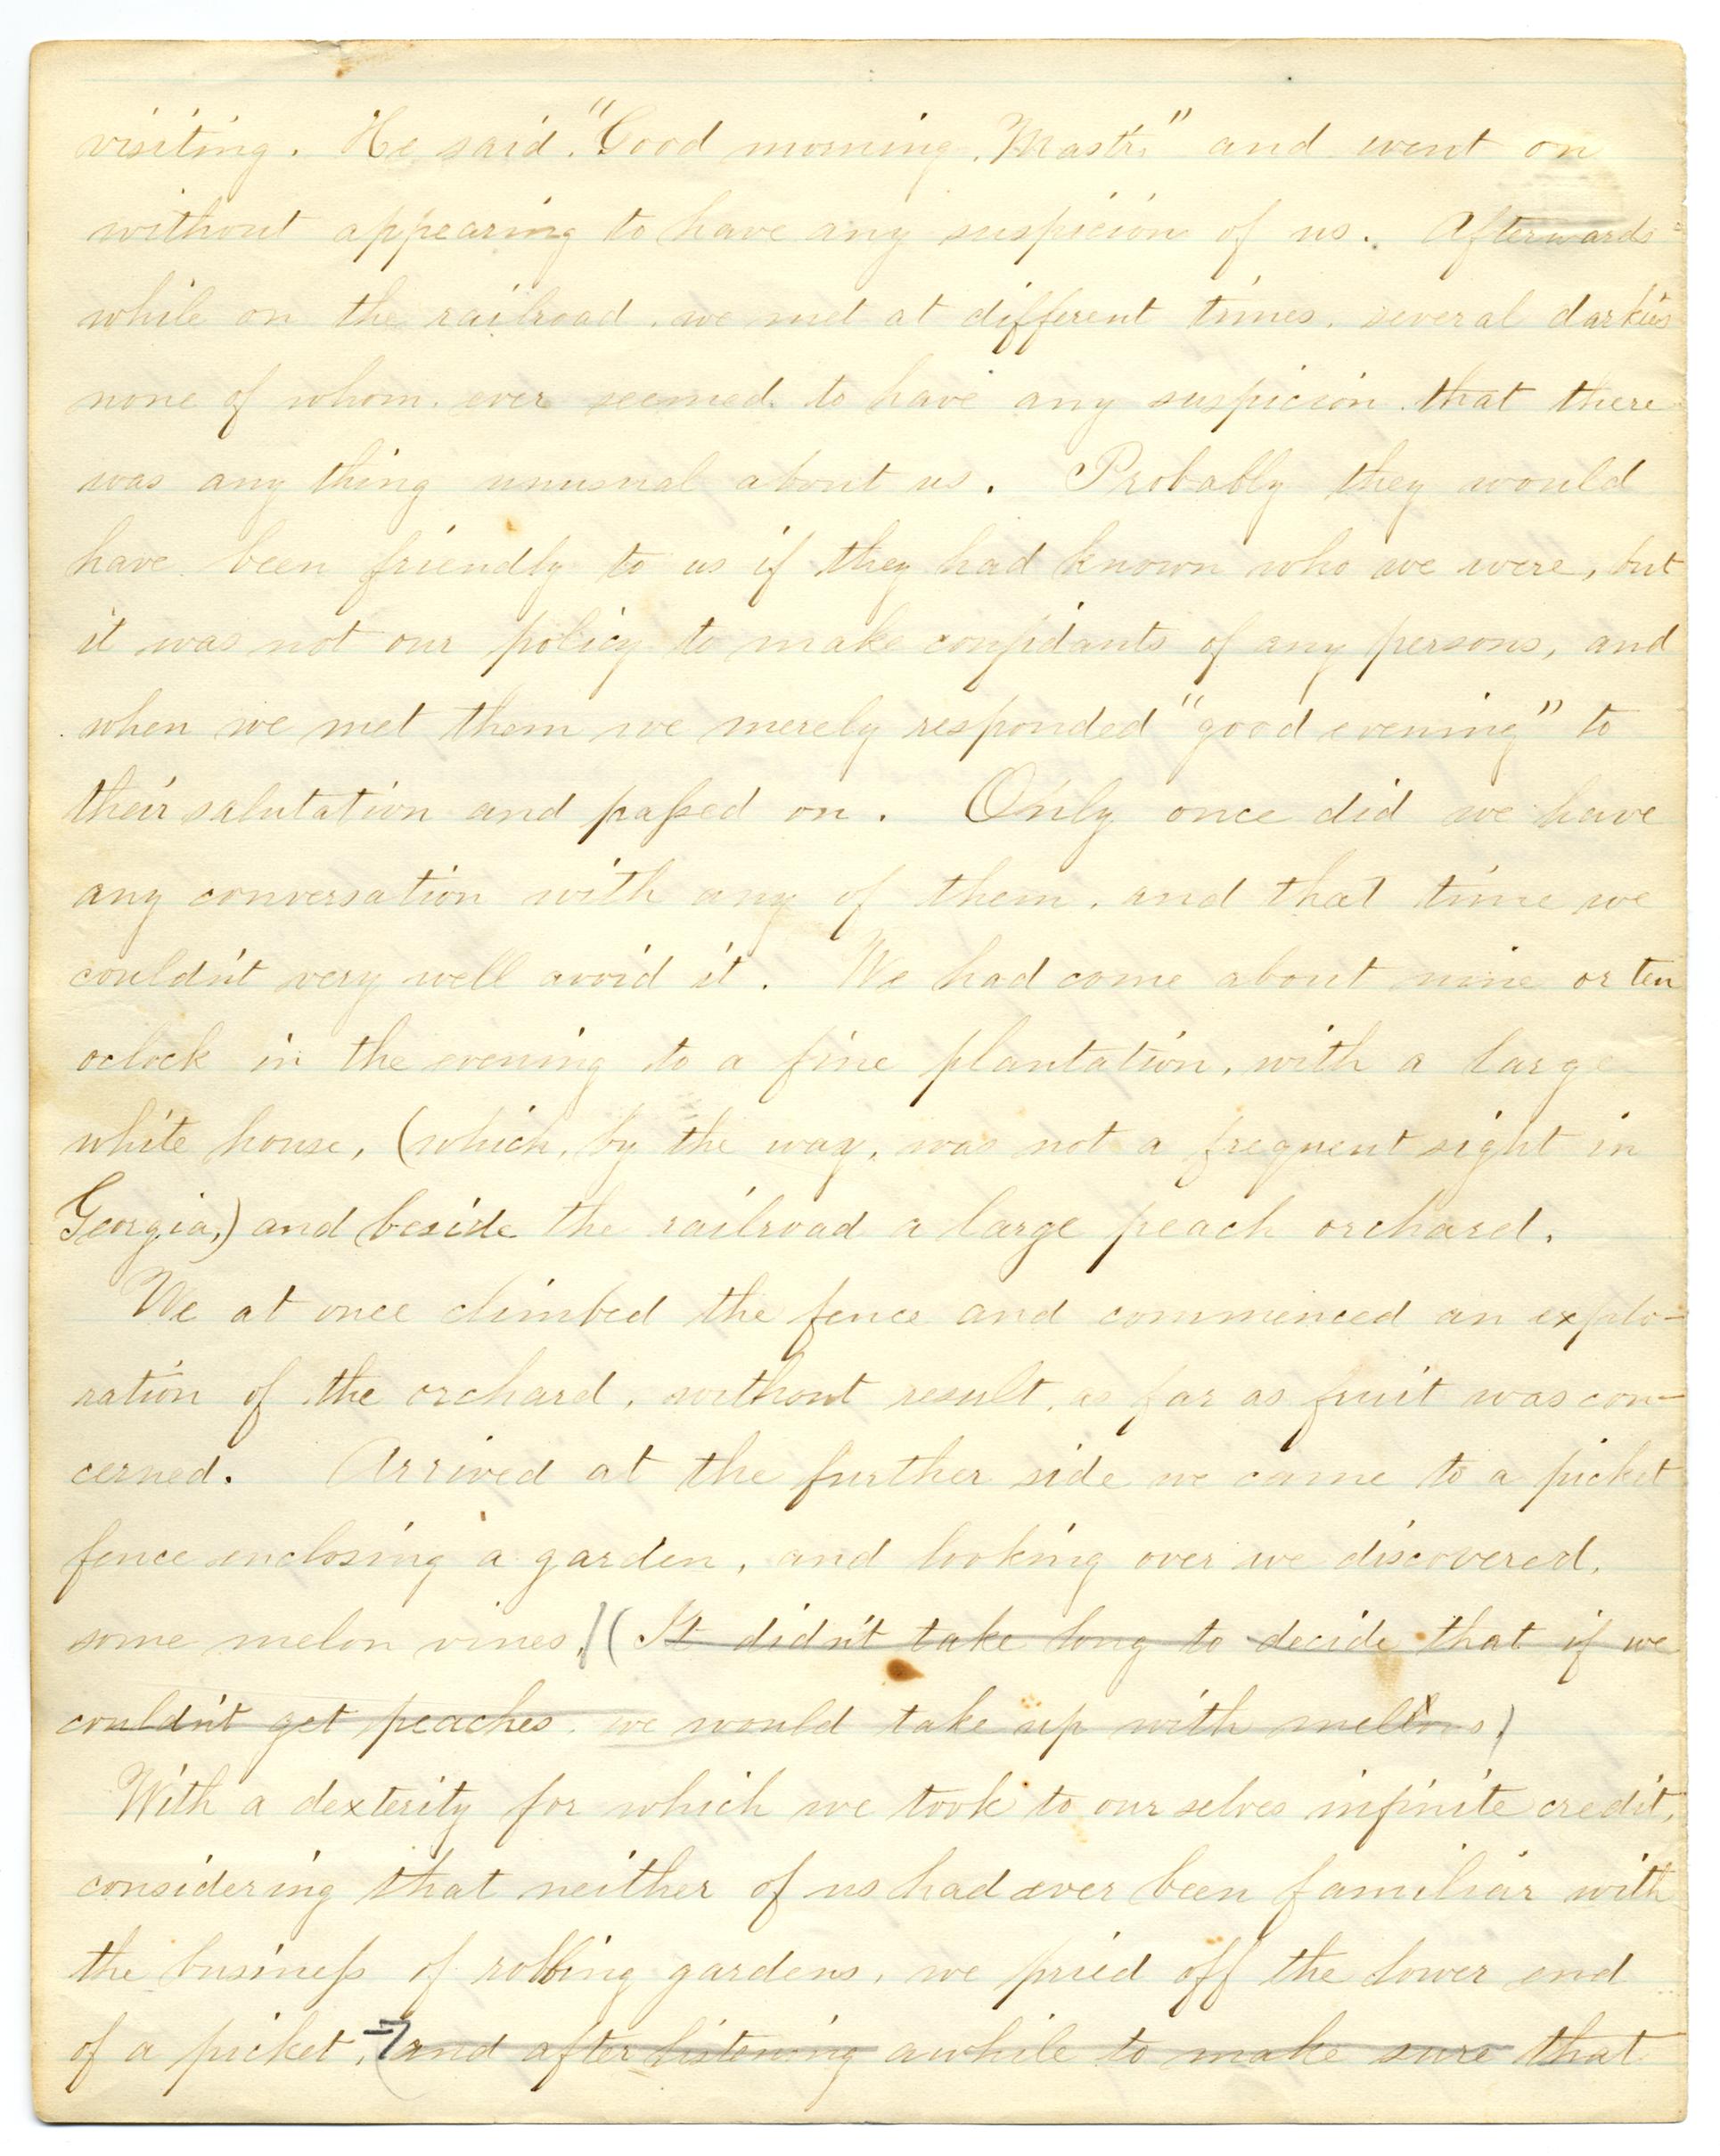 visiting. He said "Good morning, Mastr," and went on
without appearing to have any suspicion of us. Afterwards
while on the railroad, we met at different times, several darkies
none of whom ever seemed to have any suspicion that there
was any thing unusual about us. Probably they would
have been friendly to us if they had known who we were, but
it was not our policy to make confidants of any persons, and
when we met them we merely responded "good evening" to
their salutation and passed on. Only once did we have
any conversation with any of them, and that time we
couldn't very well avoid it. We had come about nine or ten
oclock in the evening to a fine plantation, with a large
white house, (which, by the way, was not a frequent sight in
Georgia,) and beside the railroad a large peach orchard.
We at once climbed the fence and commenced an explo-
ration of the orchard, without result, as far as fruit was con-
cerned. Arrived at the further side we came to a picket
fence enclosing a garden, and looking over we discovered,
some melon vines. (It didn't take long to decide that if we
couldn't get peaches, we would take up with melons)
With a dexterity for which we took to our selves infinite credit,
considering that neither of us had ever been familiar with
the business of robbing gardens, we pried off the lower end
of a picket, (and after listening awhile to make sure that